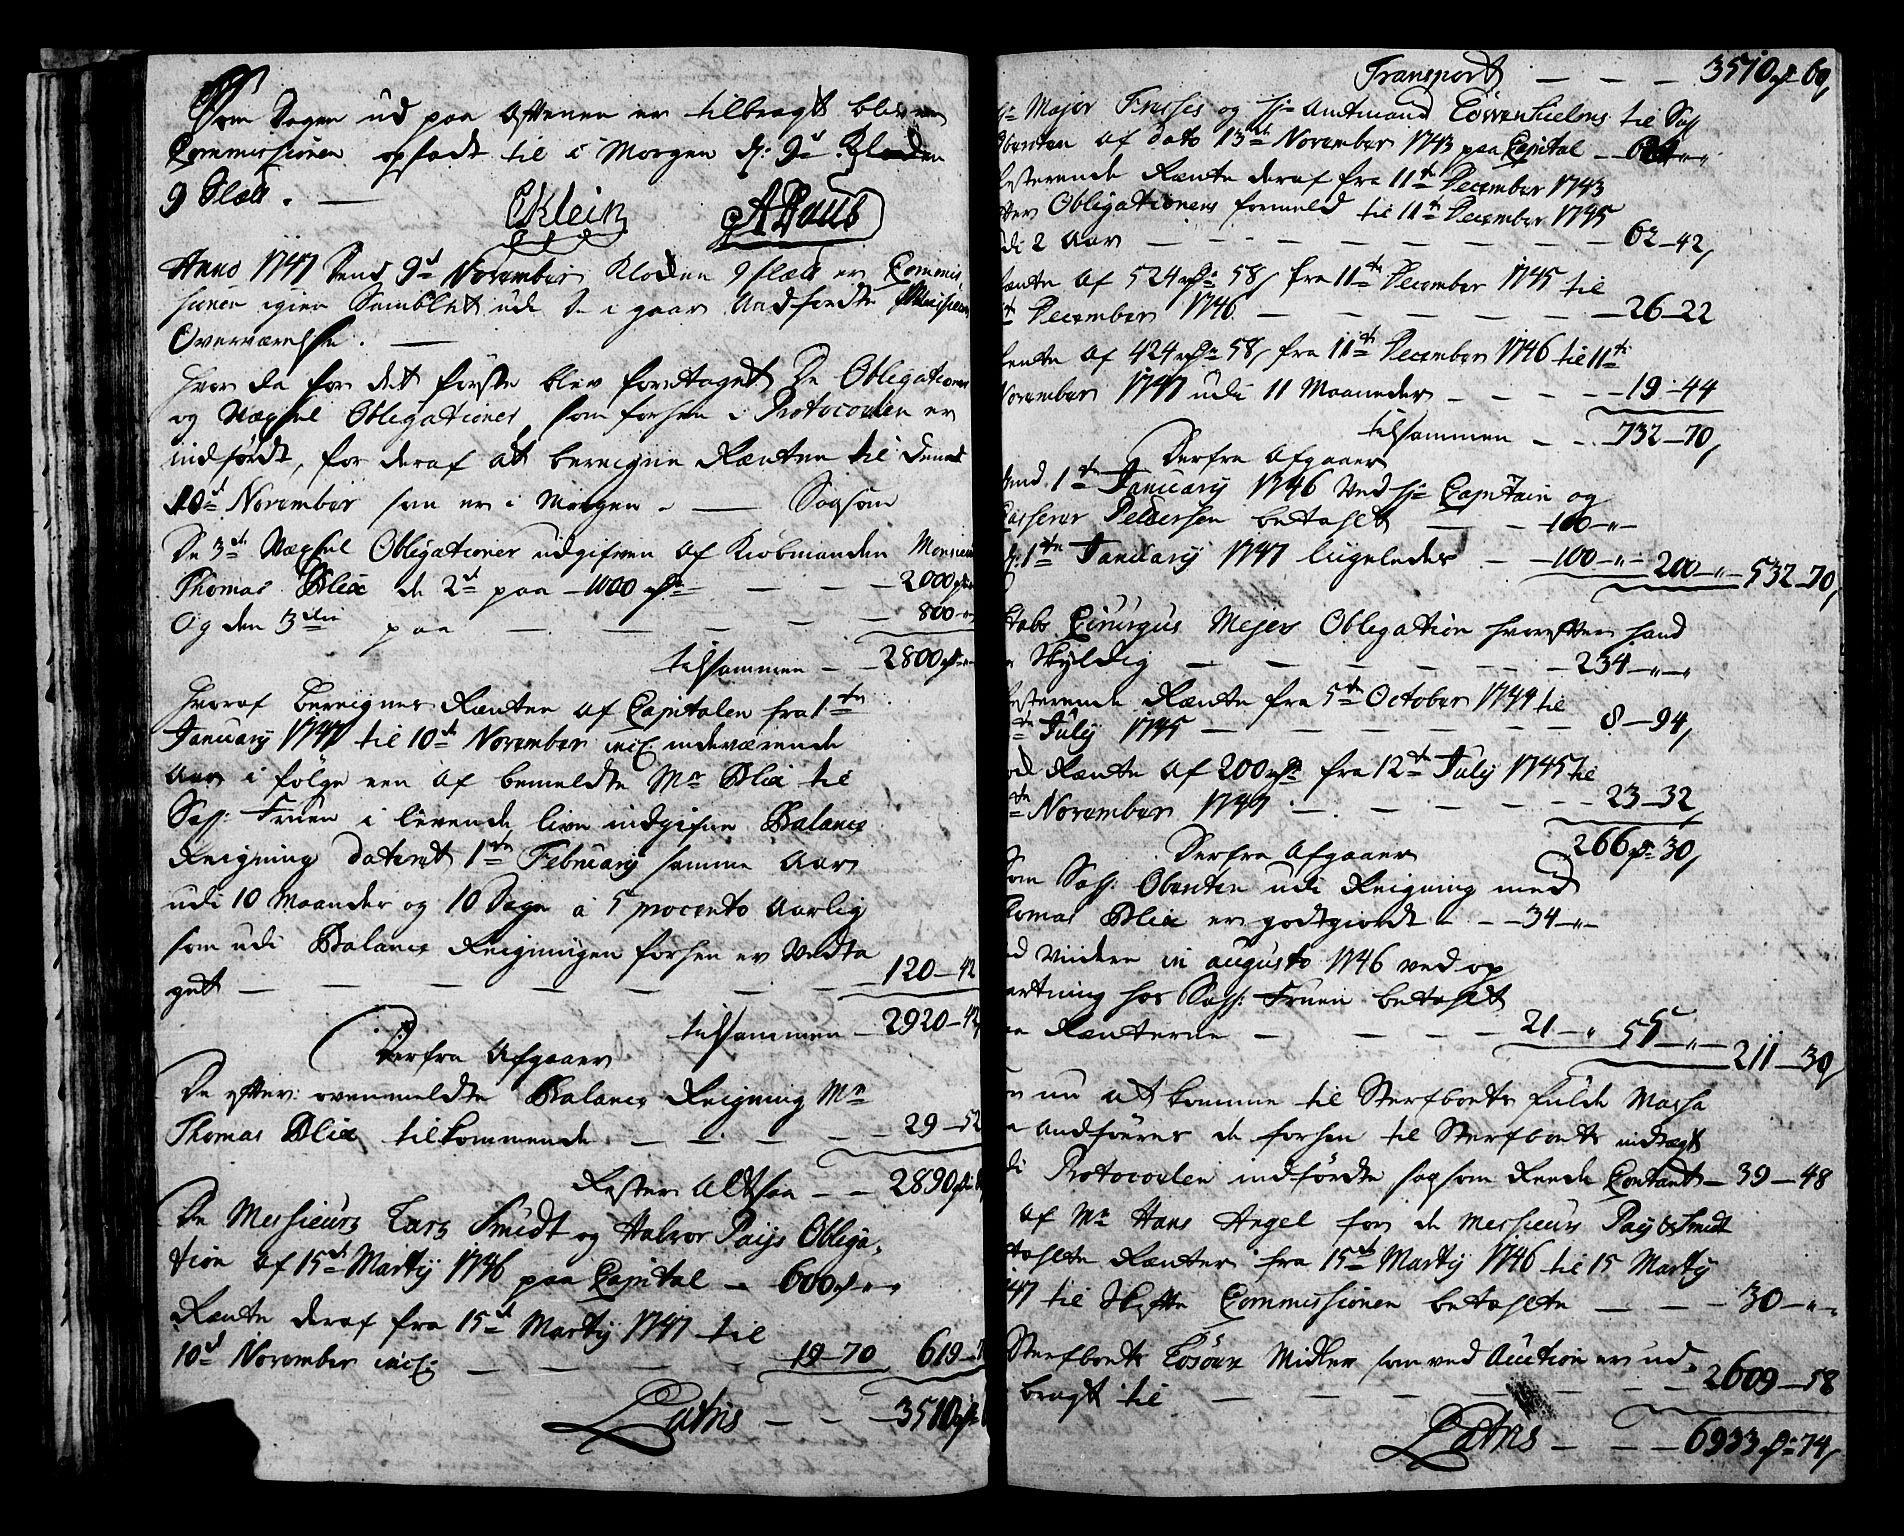 Som Dagen ud paa Aftenen er tilbragt blev
Commissionen opsadt til i Morgen d: 9de Klocken
9 Slæt.
CKlein ARaus
Anno 1747 Dend 9de November Klocken 9 slæt er Commis
sionen igien Samblet udi de i gaar Andførdte
Overværelse.
Hvor da for det første blev foretaget De Obligationer
og Vexsel Obligationer som forhen i Protocollen er
indførdt, for deraf at bereigne Renten til
10de November som er i Morgen. Saasom
De 3de Vexsel Obligationer udgifven af Kiøbmanden Monsieur
Thomas Blix de 2de paa 1000 rd 2000
Og den 3die paa 800
tilsammen 2800
Hvoraf bereignes Renten af Capitalen fra 1te
January 1747 til 10de November incl. indeværende
Aar i følge een af bemeldte Mr Blix til
Sal: Fruen i levende live indgifne Balance
Reigning dateret 1te February samme Aar
udi 10 Maaneder og 10 Dage a 5 procento Aarlig
som udi Balance Reigningen forhen er Vedta
get 120 - 42
tilsammen 2920 - 42
Derfra Afgaaer
De efter ovenmeldte Balance Reigning Mr
Thomas Blix tilkommende 29 - 52
Rester Altsaa 2890
De Messieurs Lars Smidt og Halvor Pays Obliga-
tion af 15de Martij 1746 paa Capital 600
Rente deraf fra 15de Martij 1747 til
10de November incl: 19 - 70 619 - 70
Latus 3510
Transport 3510 - 60
Major Frises og Hr Amtmand til Sal
af dato 13de November 1743 paa Capital
Resterende Rente deraf fra 11te December 1743
efter Obligationens formeld til 11te December 1745
udi 2 Aar 62 - 42
Rente af 524 rd 58 fra 11te December 1745 til
December 1746 26 - 22
Rente af 424 rd 58 fra 11te December 1746 til 11te
November 1747 udi 11 Maaneder 19 - 44
tilsammen 732 - 70
Derfra Afgaaer
1te January 1746 Ved Hr Capitain og
Casserer Pedersen betalt 100
1te January 1747 ligeledes 100 200 532 - 70
Stabs Cirurgus Meyers Obligation hvorefter hand
Skyldig 234
Resterende Rente fra 5te October 1744 til
July 1745 8 - 94
Rente af 200 rd fra 12te July 1745 til
November 1747 23 - 32
266 - 30
Derfra Afgaaer
Som Sal: udi Reigning med
Thomas Blix er godtgiordt 34
in augusto 1746 ved op
vartning hos Sal: Fruen betalt
Renterne 21 55 211 - 30
nu at komme til Sterfboets fulde Massa
Andføres de forhen til Sterfboets indtægt
udi Protocollen indførdte saasom Reede Contant 39 - 48
af Mr Hans Angel for de Messieurs Pay & Smidt
betalte Renter fra 15de Martij 1746 til 15 Martij
1747 til Skifte Commissionen betalte 30
Sterfboets Løsøre Midler som ved Auction er ud-
bragt til 2609 - 58
Latus 6933 - 74